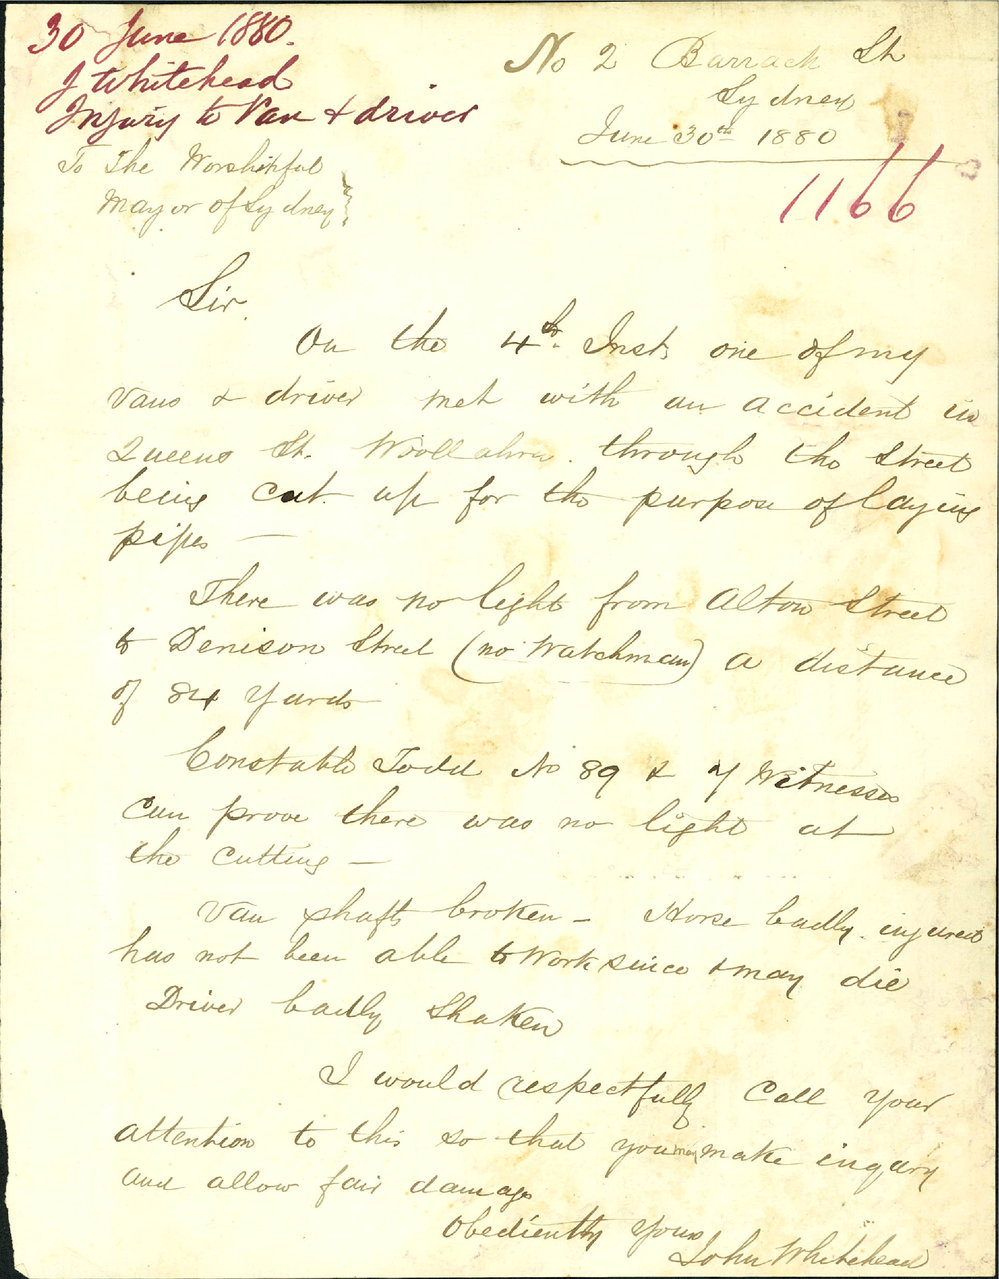 30 June 1880.
J Whitehead
Injury to Van & driver
No 2 Barrack St
Sydney
June 30th 1880
1166
To The Worshipful
Mayor of Sydney
Sir.
On the 4th. Inst. one of my
Vans & driver met with an accident in
Queens St. Woollahra. through the Street
being Cut up for the purpose of laying
pipes —
There was no light from Alton Street
to Denison Street (no Watchman) a distance
of 84 Yards
Constable Todd No 89 & 7 Witnesses
can prove there was no light at
the Cutting —
Van shafts broken — Horse badly injured
has not been able to Work since & may die
Driver badly Shaken
I would respectfully Call Your
attention to this so that you may make inquiry
and allow fair damage
Obediently Yours
John Whitehead